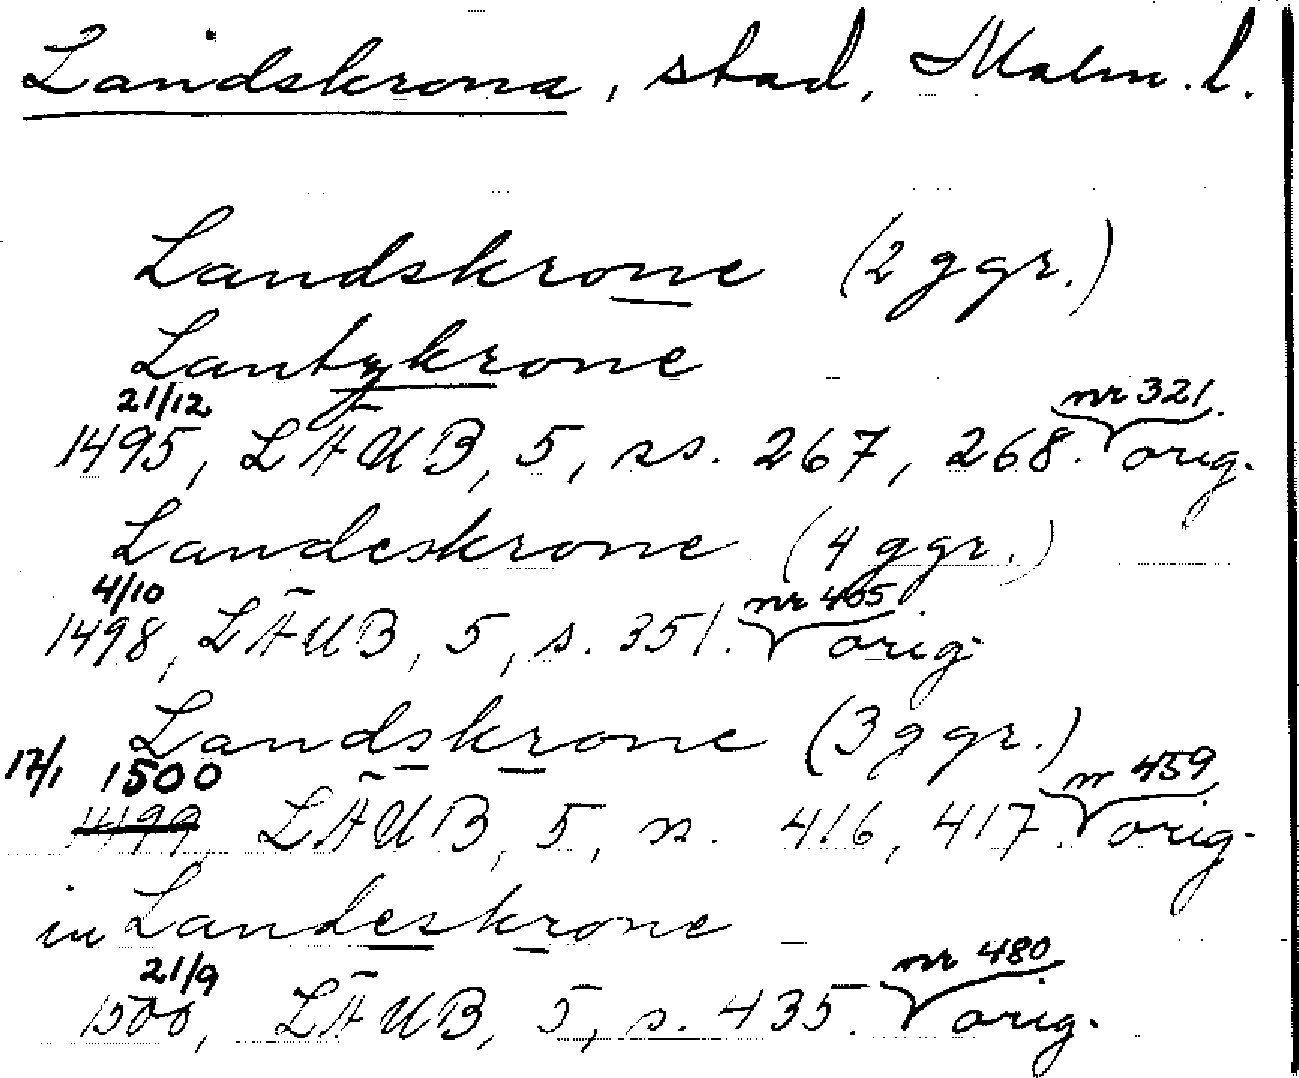 Landskrona, stad, Malm. l.
Landskrone (2 ggr.)
Lantzkrone
21/12
1495, LÄUB, 5, ss. 267, 268. nr 321. orig.
Landeskrone (4 ggr.)
4/10
1498, LÄUB, 5, s. 351. nr 405. orig.
Landskrone (3 ggr.)
17/1 1500
1499, LÄUB, 5, ss. 416, 417. nr 459 orig.
in Landeskrone
21/9
1500, LÄUB, 5, s. 435. nr 480. orig.